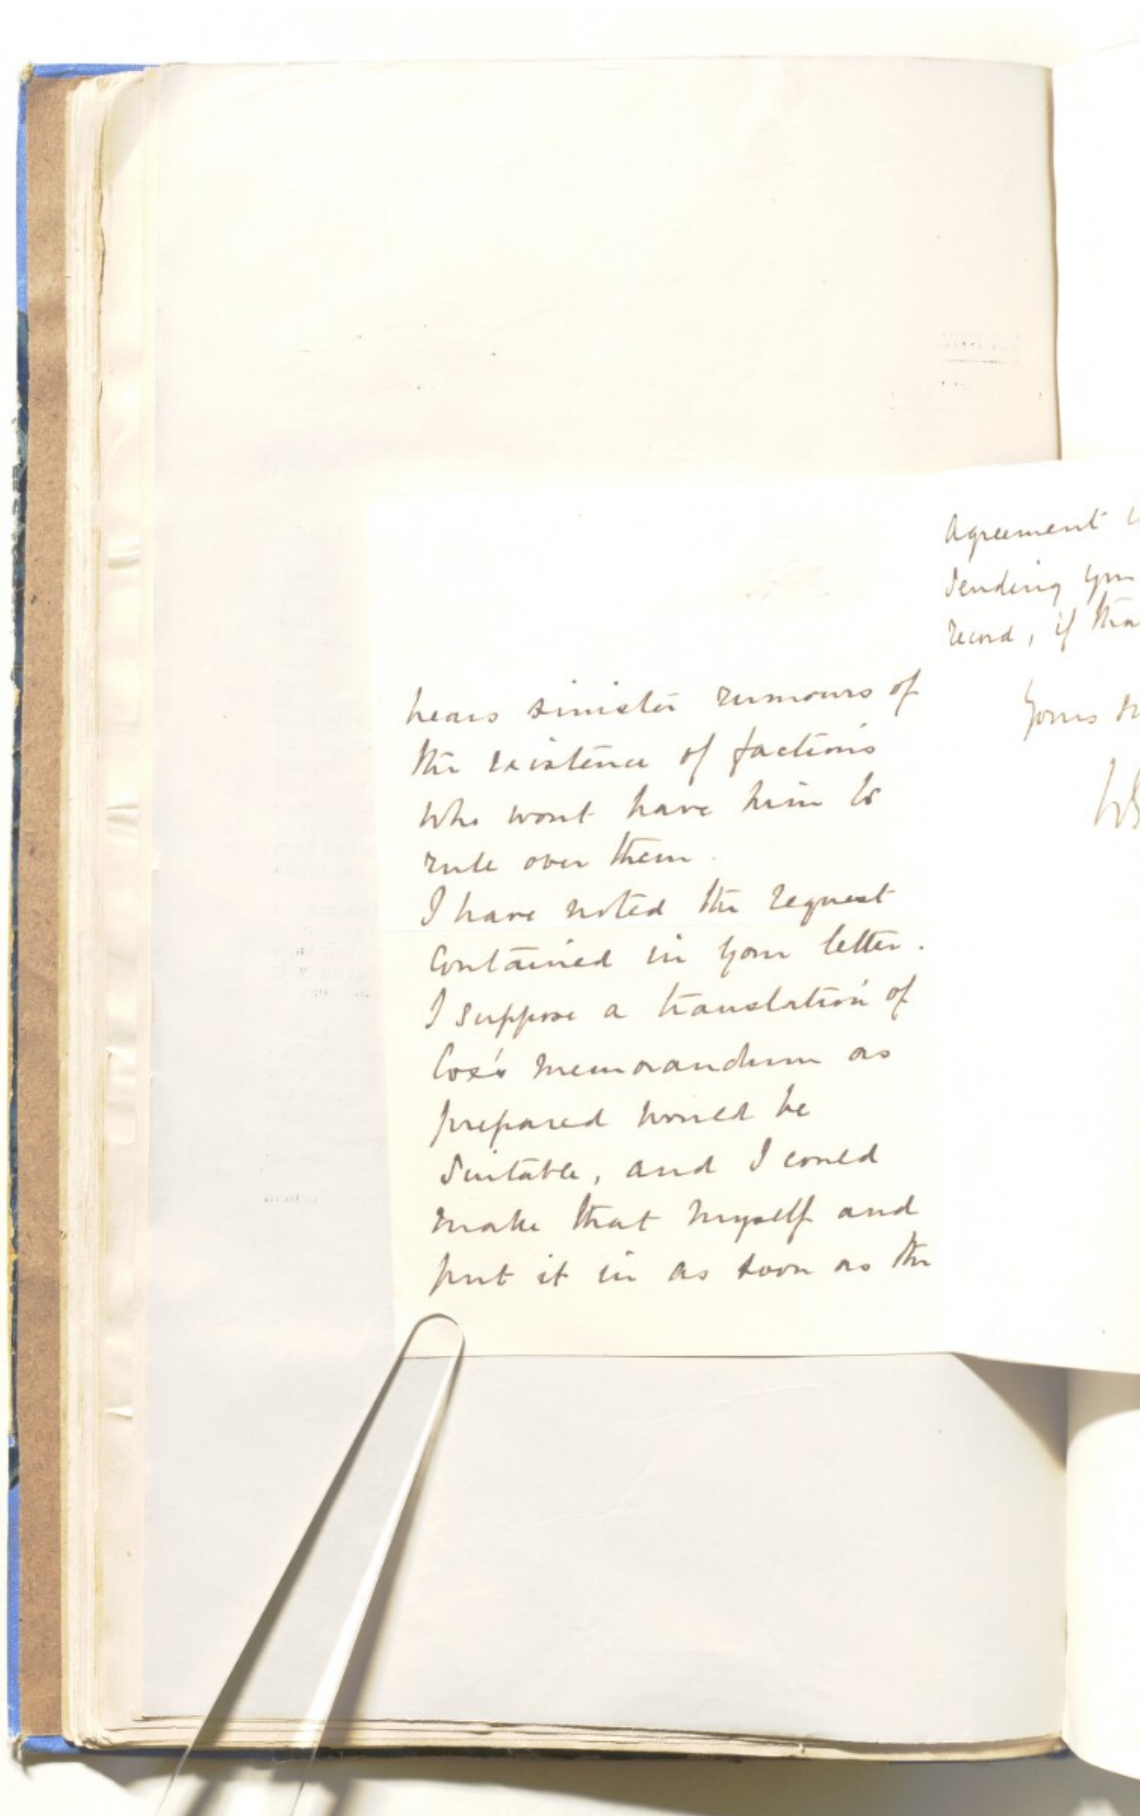 hears sinister rumours of
the existence of factions
who wont have him to
rule over them.
I have noted the request
contained in your letter.
I suppose a translation of
Cox's memorandum as
prepared would be
suitable, and I could
make that myself and
put it in as soon as the
Agreement
sending you
record, if
Yours